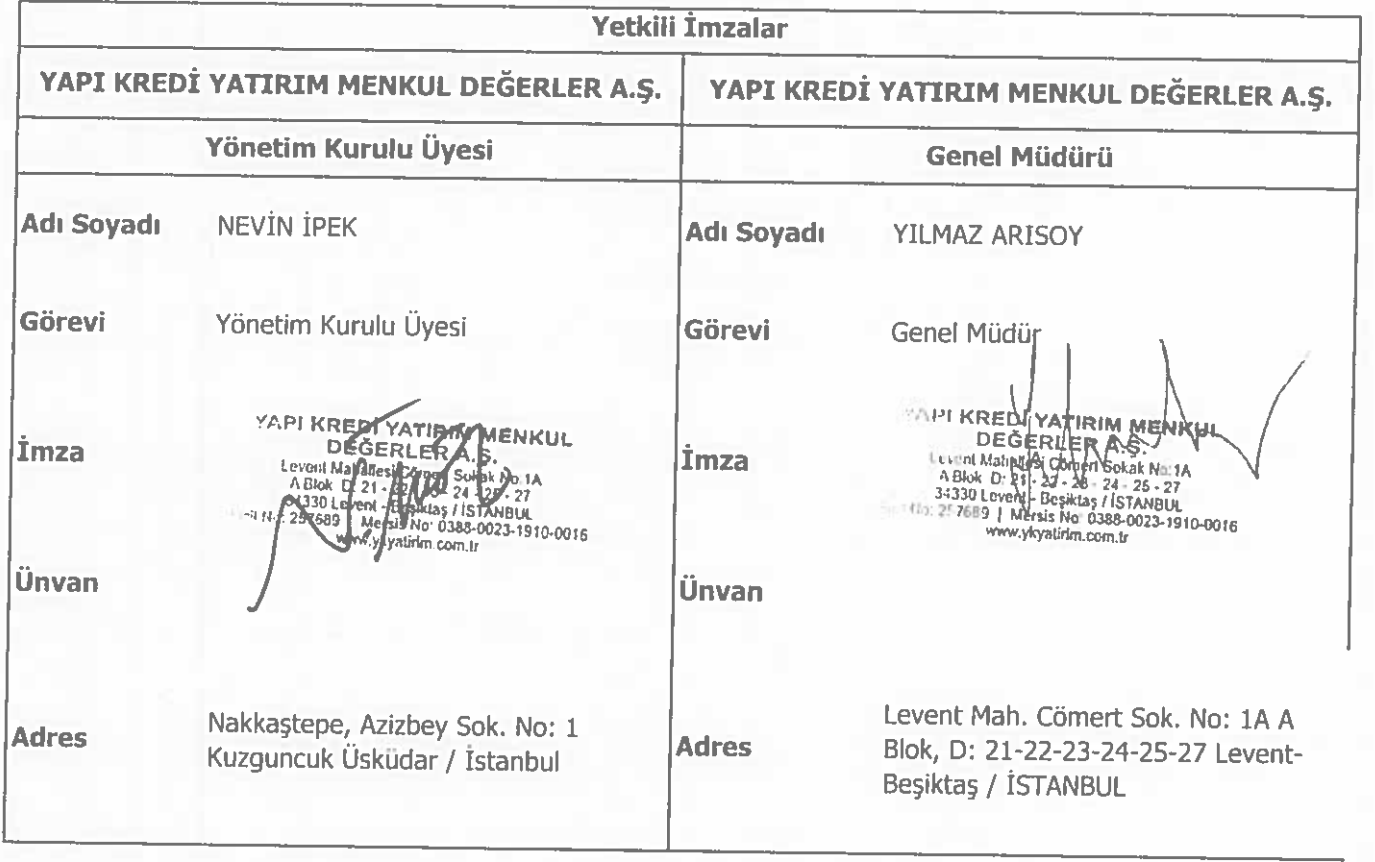 Yetkili İmzalar
YAPI KREDİ YATIRIM MENKUL DEĞERLER A.Ş.
YAPI KREDİ YATIRIM MENKUL DEĞERLER A.Ş.
Yönetim Kurulu Üyesi
Genel Müdürü
Adı Soyadı NEVİN İPEK
Görevi Yönetim Kurulu Üyesi
İmza
YAPI KREDİ YATIRIM MENKUL
DEĞERLER A.Ş.
Levent Mahallesi Cömert Sokak No:1A
A Blok D: 21 - 24 - 25 - 27
34330 Levent - Beşiktaş / İSTANBUL
257689 | Mersis No: 0388-0023-1910-0016
www.ykyatirim.com.tr
Ünvan
Adres Nakkaştepe, Azizbey Sok. No: 1
Kuzguncuk Üsküdar / İstanbul
Adı Soyadı YILMAZ ARISOY
Görevi Genel Müdür
İmza
YAPI KREDİ YATIRIM MENKUL
DEĞERLER A.Ş.
Levent Mahallesi Cömert Sokak No:1A
A Blok D: 21 - 24 - 25 - 27
34330 Levent - Beşiktaş / İSTANBUL
257689 | Mersis No: 0388-0023-1910-0016
www.ykyatirim.com.tr
Ünvan
Adres Levent Mah. Cömert Sok. No: 1A A
Blok, D: 21-22-23-24-25-27 Levent-
Beşiktaş / İSTANBUL